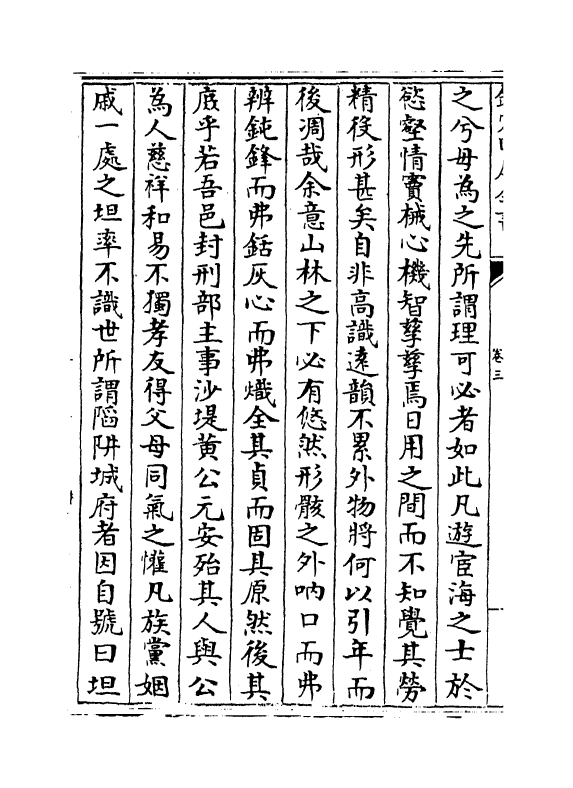 卷三
之兮毋為之先所謂理可必者如此凡遊宦海之士於
慾壑情竇械心機智孳孳焉日用之間而不知覺其勞
精役形甚矣自非高識遠韻不累外物將何以引年而
後凋哉余意山林之下必有悠然形骸之外吶口而弗
辨鈍鋒而弗銛灰心而弗熾全其貞而固其原然後其
庶乎若吾邑封刑部主事沙堤黄公元安殆其人與公
為人慈祥和易不獨孝友得父母同氣之懽凡族黨姻
戚一處之坦率不識世所謂䧟阱城府者因自號曰坦